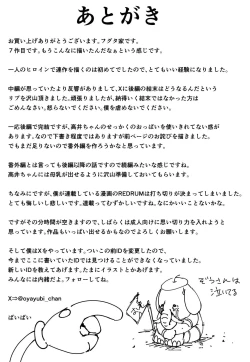 あとがき
お買い上げありがとうございます。フグタ家です。
7作目です。もうこんなに描いたんだなぁという感じです。
一人のヒロインで連作を描くのは初めてでしたので、とてもいい経験になりました。
中編が思っていたより反響がありまして、Xに後編の結末はどうなるんだというリプを沢山頂きました。頑張りましたが、納得いく結末ではなかった方は
ごめんなさい。怒らないでください。僕を虐めないでください。
一応後編で完結ですが、高井ちゃんのせっかくのおっぱいを使いきれてない感が
あります。なので下書き程度ではありますが前ページのお詫びを描きました。
でもまだ足りないので番外編を作ろうかなと思っています。
番外編とは言っても後編以降の話ですので続編みたいな感じですね。
高井ちゃんには母乳が出せるように沢山準備しておいてもらいます。
ちなみにですが、僕が連載している漫画のREDRUMは打ち切りが決まってしまいました。
とても悔しいし悲しいです。連載ってむずかしいですね。なにがいいことないかな。
ですがその分時間が空きますので、しばらくは成人向けに思い切り力を入れようと
思っています。作品もいっぱい出せるかもなのでよろしくお願いします。
そして僕はXをやっています。ついこの前IDを変更したので、
今までここに書いていたIDでは見つけることができなくなっています。
新しいIDを教えてあげます。たまにイラストとかあげます。
みんなには内緒だよ。フォローしてね。
X⇒@oyayubi_chan
ばいばい
ぞうさんは
泣いてる